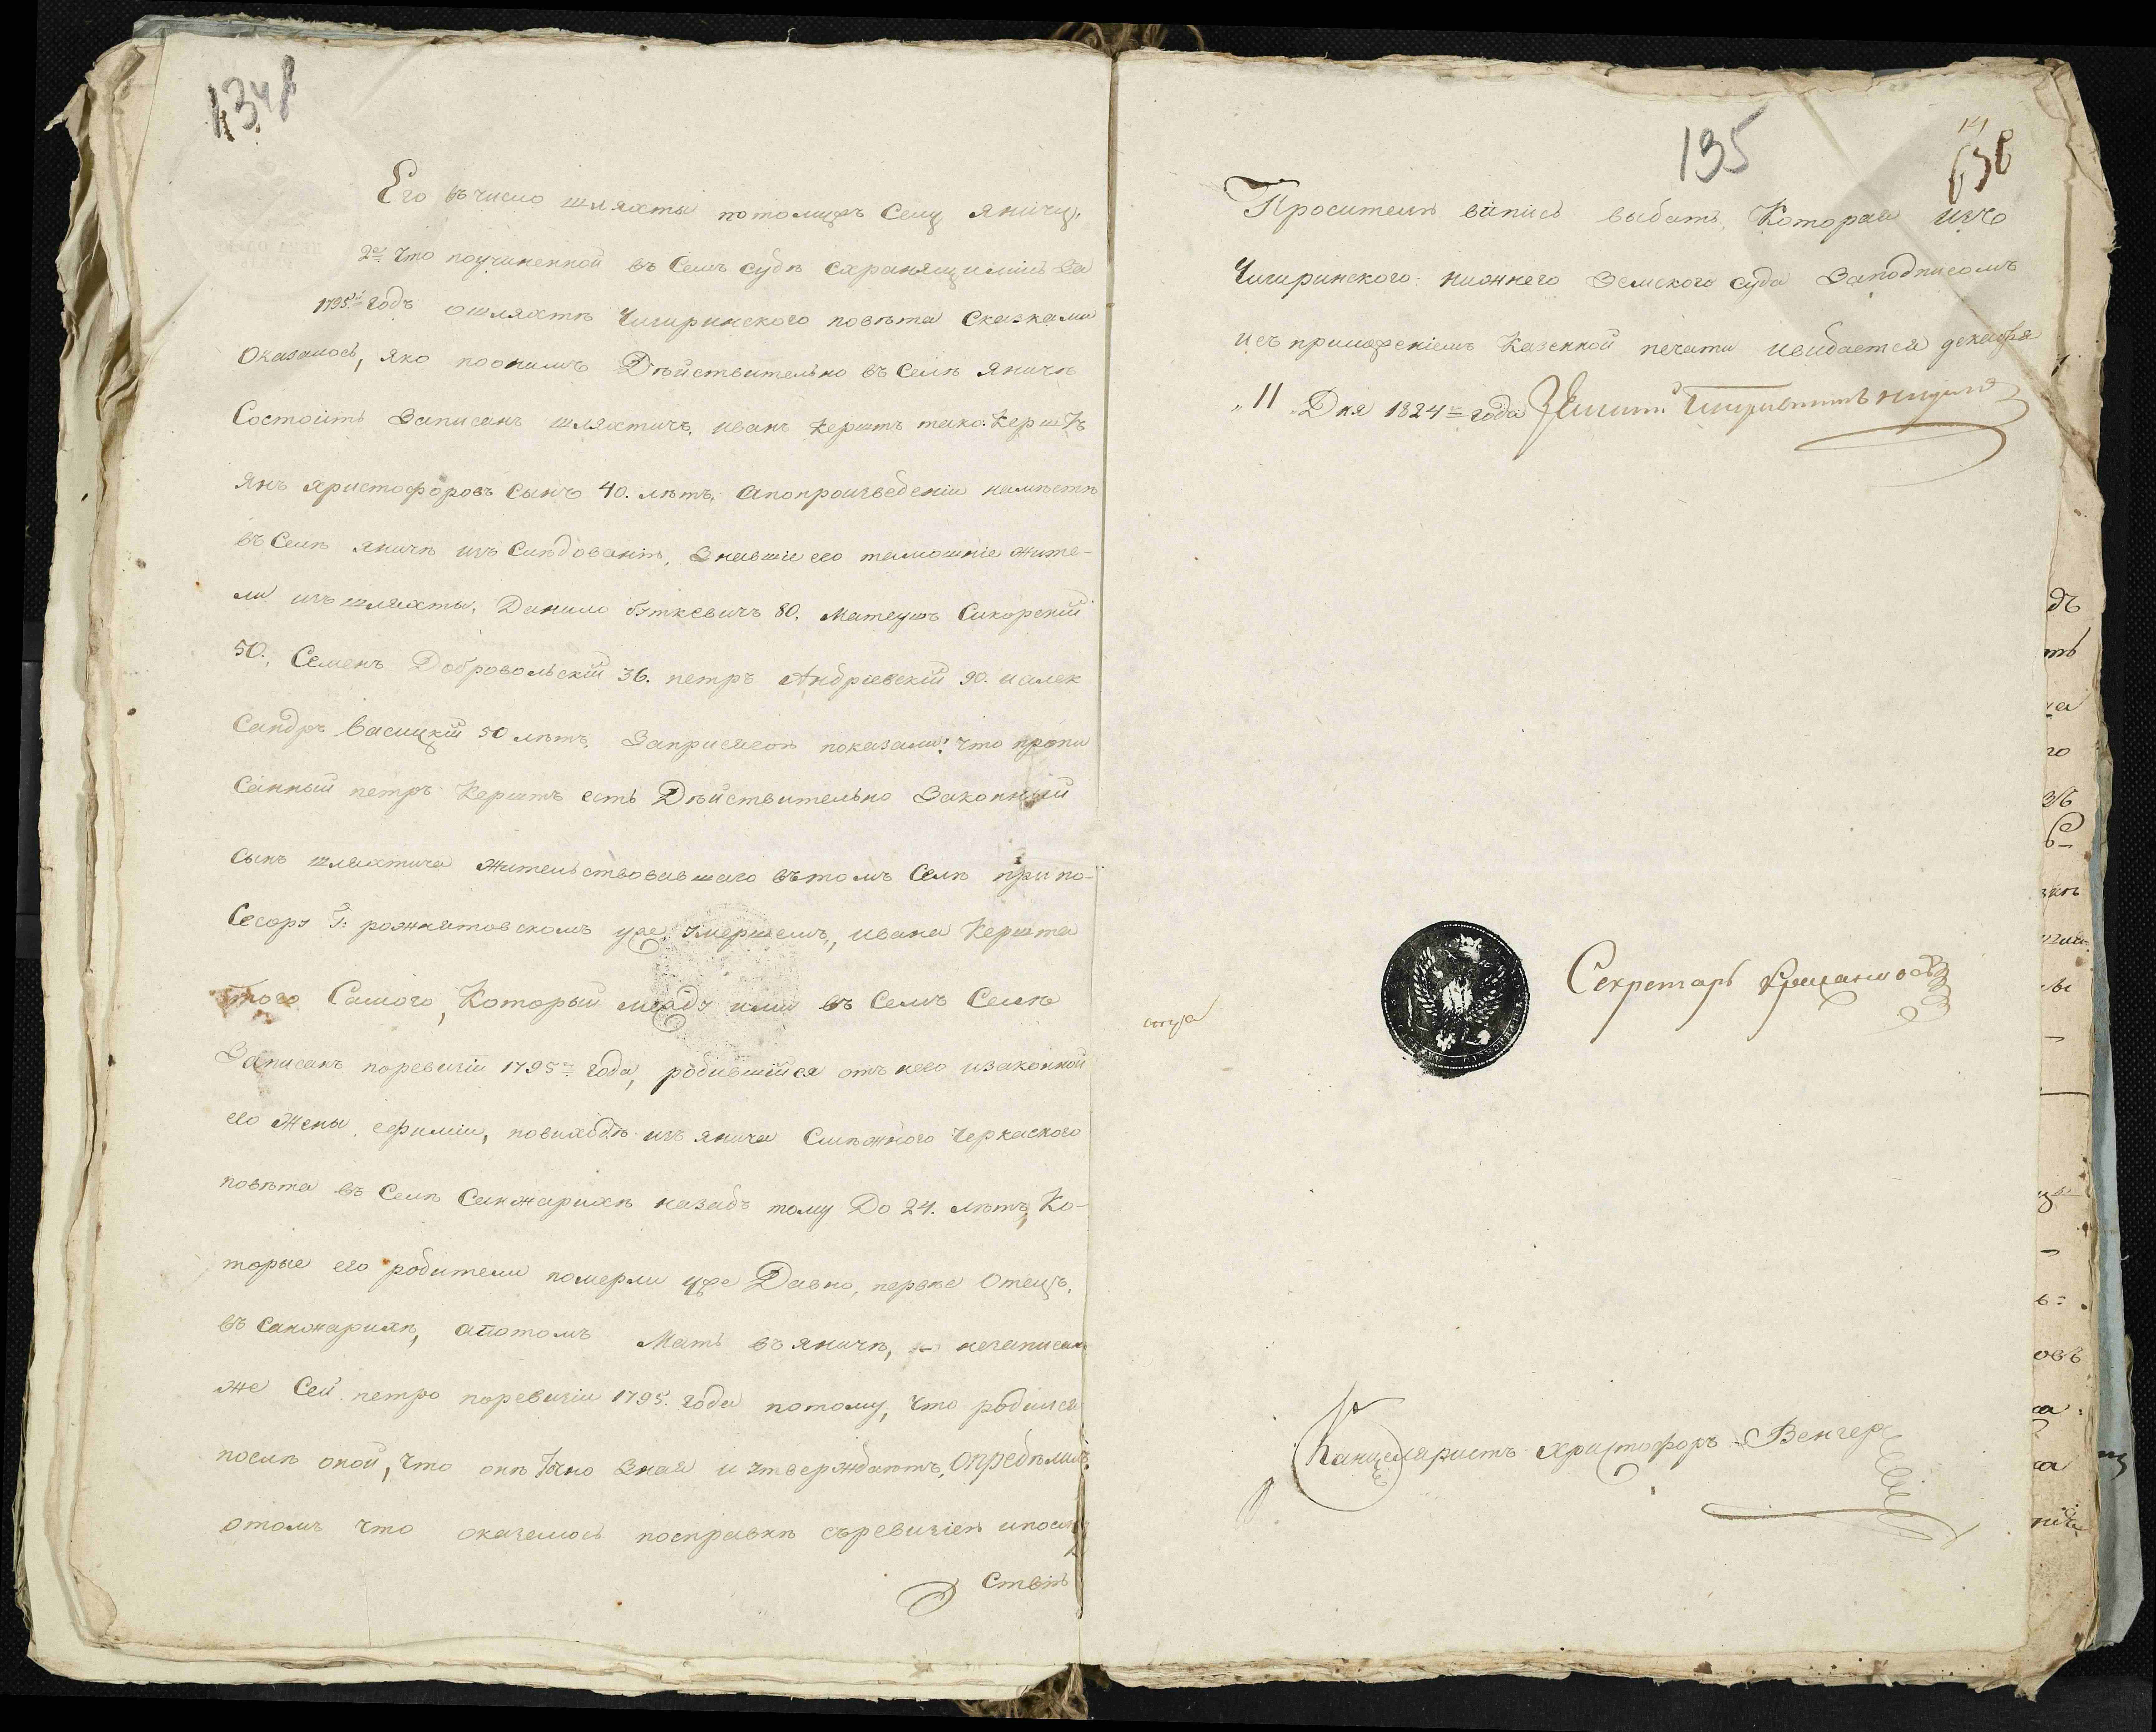 134
Его въ число шляхты потомужъ Селу Яничу.
2е. Что поучиненной въ Семъ судѣ схранящимись за
1795й годъ ошляхтѣ Чигиринского повѣта Сказками
Оказалось, яко поонимъ Дѣйствительно въ Селѣ Яничѣ
Состоитъ Записанъ шляхтичъ, иванъ Керштъ тако. Кершъ
Янъ Христофоровъ сынъ 40. лѣтъ. апопроизведенїи намѣстѣ
въ Селѣ Яничѣ изъ Слѣдованїи, Знавшїе его тамошнїе жите-
ли изъ шляхты, Данило Бѣткевичъ 80. Матеушъ Сикорскїй
50. Семенъ Добровольскїй 36. петръ Андрїевскїй 90. иалек
Сандръ Васицкїй 50 лѣтъ, Заприсягою показали: что пропи
Санный петръ Керштъ есть Дѣйствительно Законный
сынъ шляхтича жительствовавшаго вътомъ Селѣ при по-
Сесорѣ Г: рожнятовскомъ уже умершемъ, ивана Кершта
того Самого, Который между ими въ Семъ Селѣ
Записанъ поревизїи 1795го года, родившїйся отъ него изаконной
его Жены ефимїи, повиходѣ изъ янича Смѣжного Черкаского
повѣта въ Селѣ Санжарихѣ назадъ тому До 24. лѣтъ, Ко-
торые его родители померли уже Давно, первѣе Отецъ,
въ Санжарихѣ, апотомъ Мать въ яничѣ, незаписанъ
же Сей петро поревизїи 1795. года потому, что родился
послѣ оной, что онѣ точно Зная и утверждаютъ, Опредѣлилъ:
отомъ что оказалось посправкѣ съревизїею ипослѣд
Ствїю
135
Просителю випись выдать, Которая изъ
Чигиринского нижнего Земского суда Заподписомъ
исъ приложенїемъ Казенной печати ивидается декабря
„11„ Дня 1824го года
Секретарь
Канцеляристъ Христофоръ Венгер